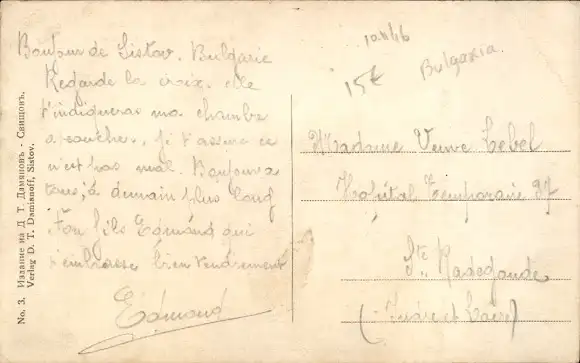 Bonjour de Sistov. Bulgarie
Regarde la croix. elle
t'indiqueras ma chambre
a coucher, je t'assure ce
n'est pas mal. Bonjour a
tous, à demain plus long
Ton fils Edmond qui
t'embrasse bien tendrement
Edmond
15€
Bulgaria.
Madame Veuve Lebel
Hopital Temporaire 37
Ste Radegonde
(Indre et Loire)
No. 3. Издание на Д. Т. Дамяновъ - Свищовъ.
Verlag D. T. Damianoff, Sistov.